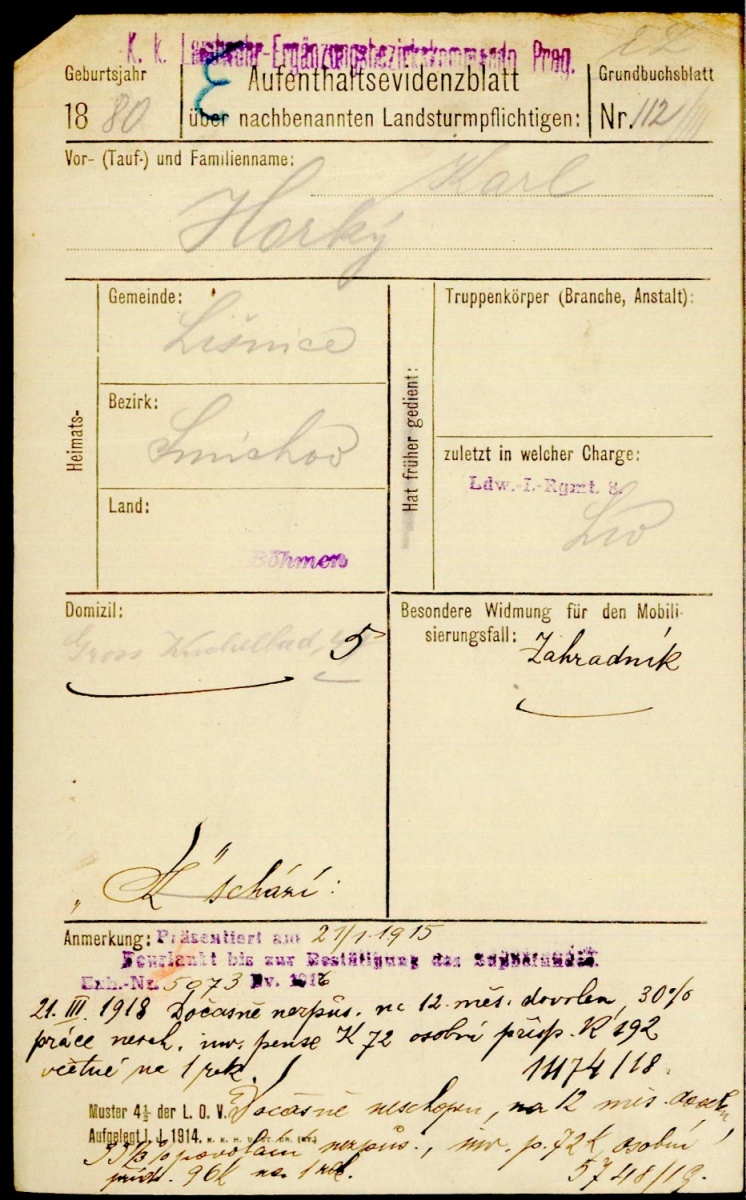 K. k. Landwehr-Ergänzungsbezirkskommando Prag.
Geburtsjahr
1880
Aufenthaltsevidenzblatt
über nachbenannten Landsturmpflichtigen:
Grundbuchsblatt
Nr. 112/III
Vor- (Tauf-) und Familienname:
Karl
Horký
Heimats-
Gemeinde:
Lišnice
Bezirk:
Smichov
Land:
Böhmen
Hat früher gedient:
Truppenkörper (Branche, Anstalt):
zuletzt in welcher Charge:
Ldw.-I.-Rgmt. 8.
Domizil:
Gross Kuchelbad, 5
Besondere Widmung für den Mobili-
sierungsfall: Zahradník
„K" schází:
Anmerkung: Präsentiert am 21/1 1915
bis zur Bestätigung des
Exh.-Nr. 5073 Ev. 1916
21. III. 1918 Dočasně nezpůs. na 12 měs. dovolen, 30%
práce nesch. inv. pense K 72 osobní přísp. K 192
včetně na 1 rok. 11174/18.
Muster 4½ der L. O. V. Dočasně neschopen, na 12 měs.
Aufgelegt 1. I. 1914.
povolání nezpůs., inv. p. 72 K osobní
96 K na 1 rok. 5748/19.